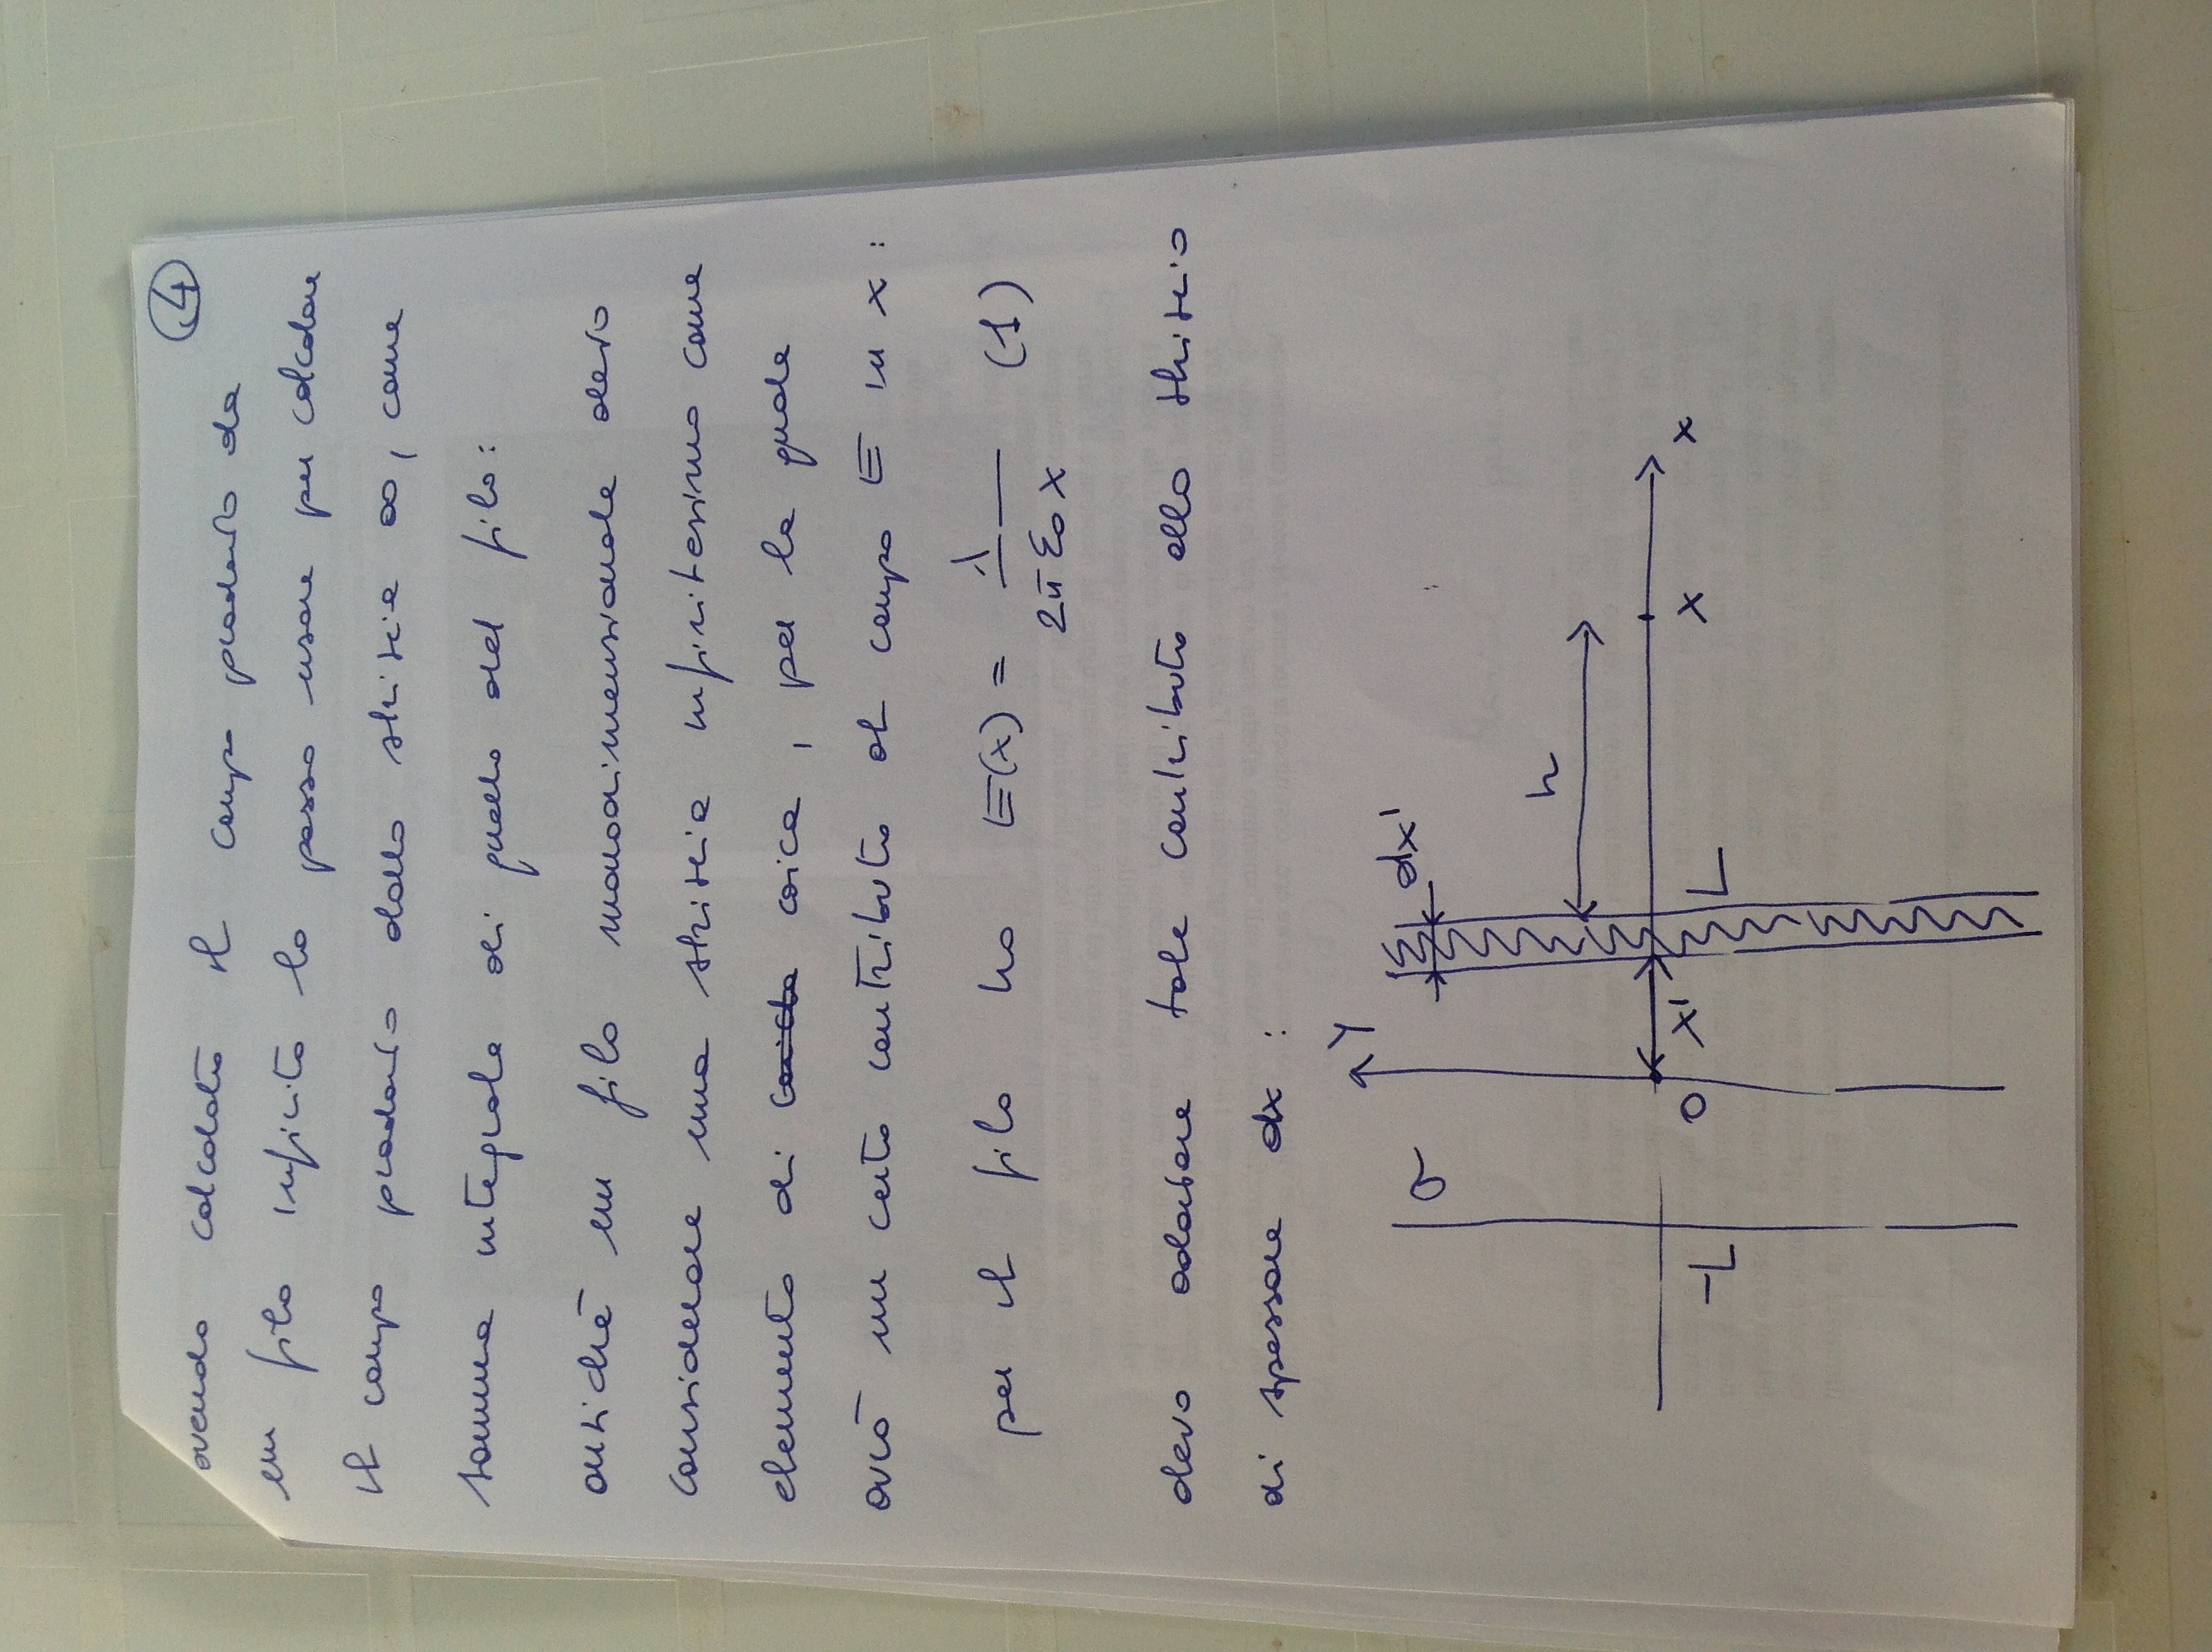 4
avendo calcolato il campo prodotto da
un filo infinito lo posso usare per calcolare
il campo prodotto dalla striscia ∞, come
somma integrale di quello del filo:
anziché un filo monodimensionale devo
considerare una striscia infinitesima come
elemento di carica, per la quale
avrò un certo contributo al campo E in x:
per il filo ho E(x) = λ / 2π ε₀ x (1)
devo adattare tale contributo alla striscia
di spessore dx :
y
σ dx'
r
-L O x' L x x